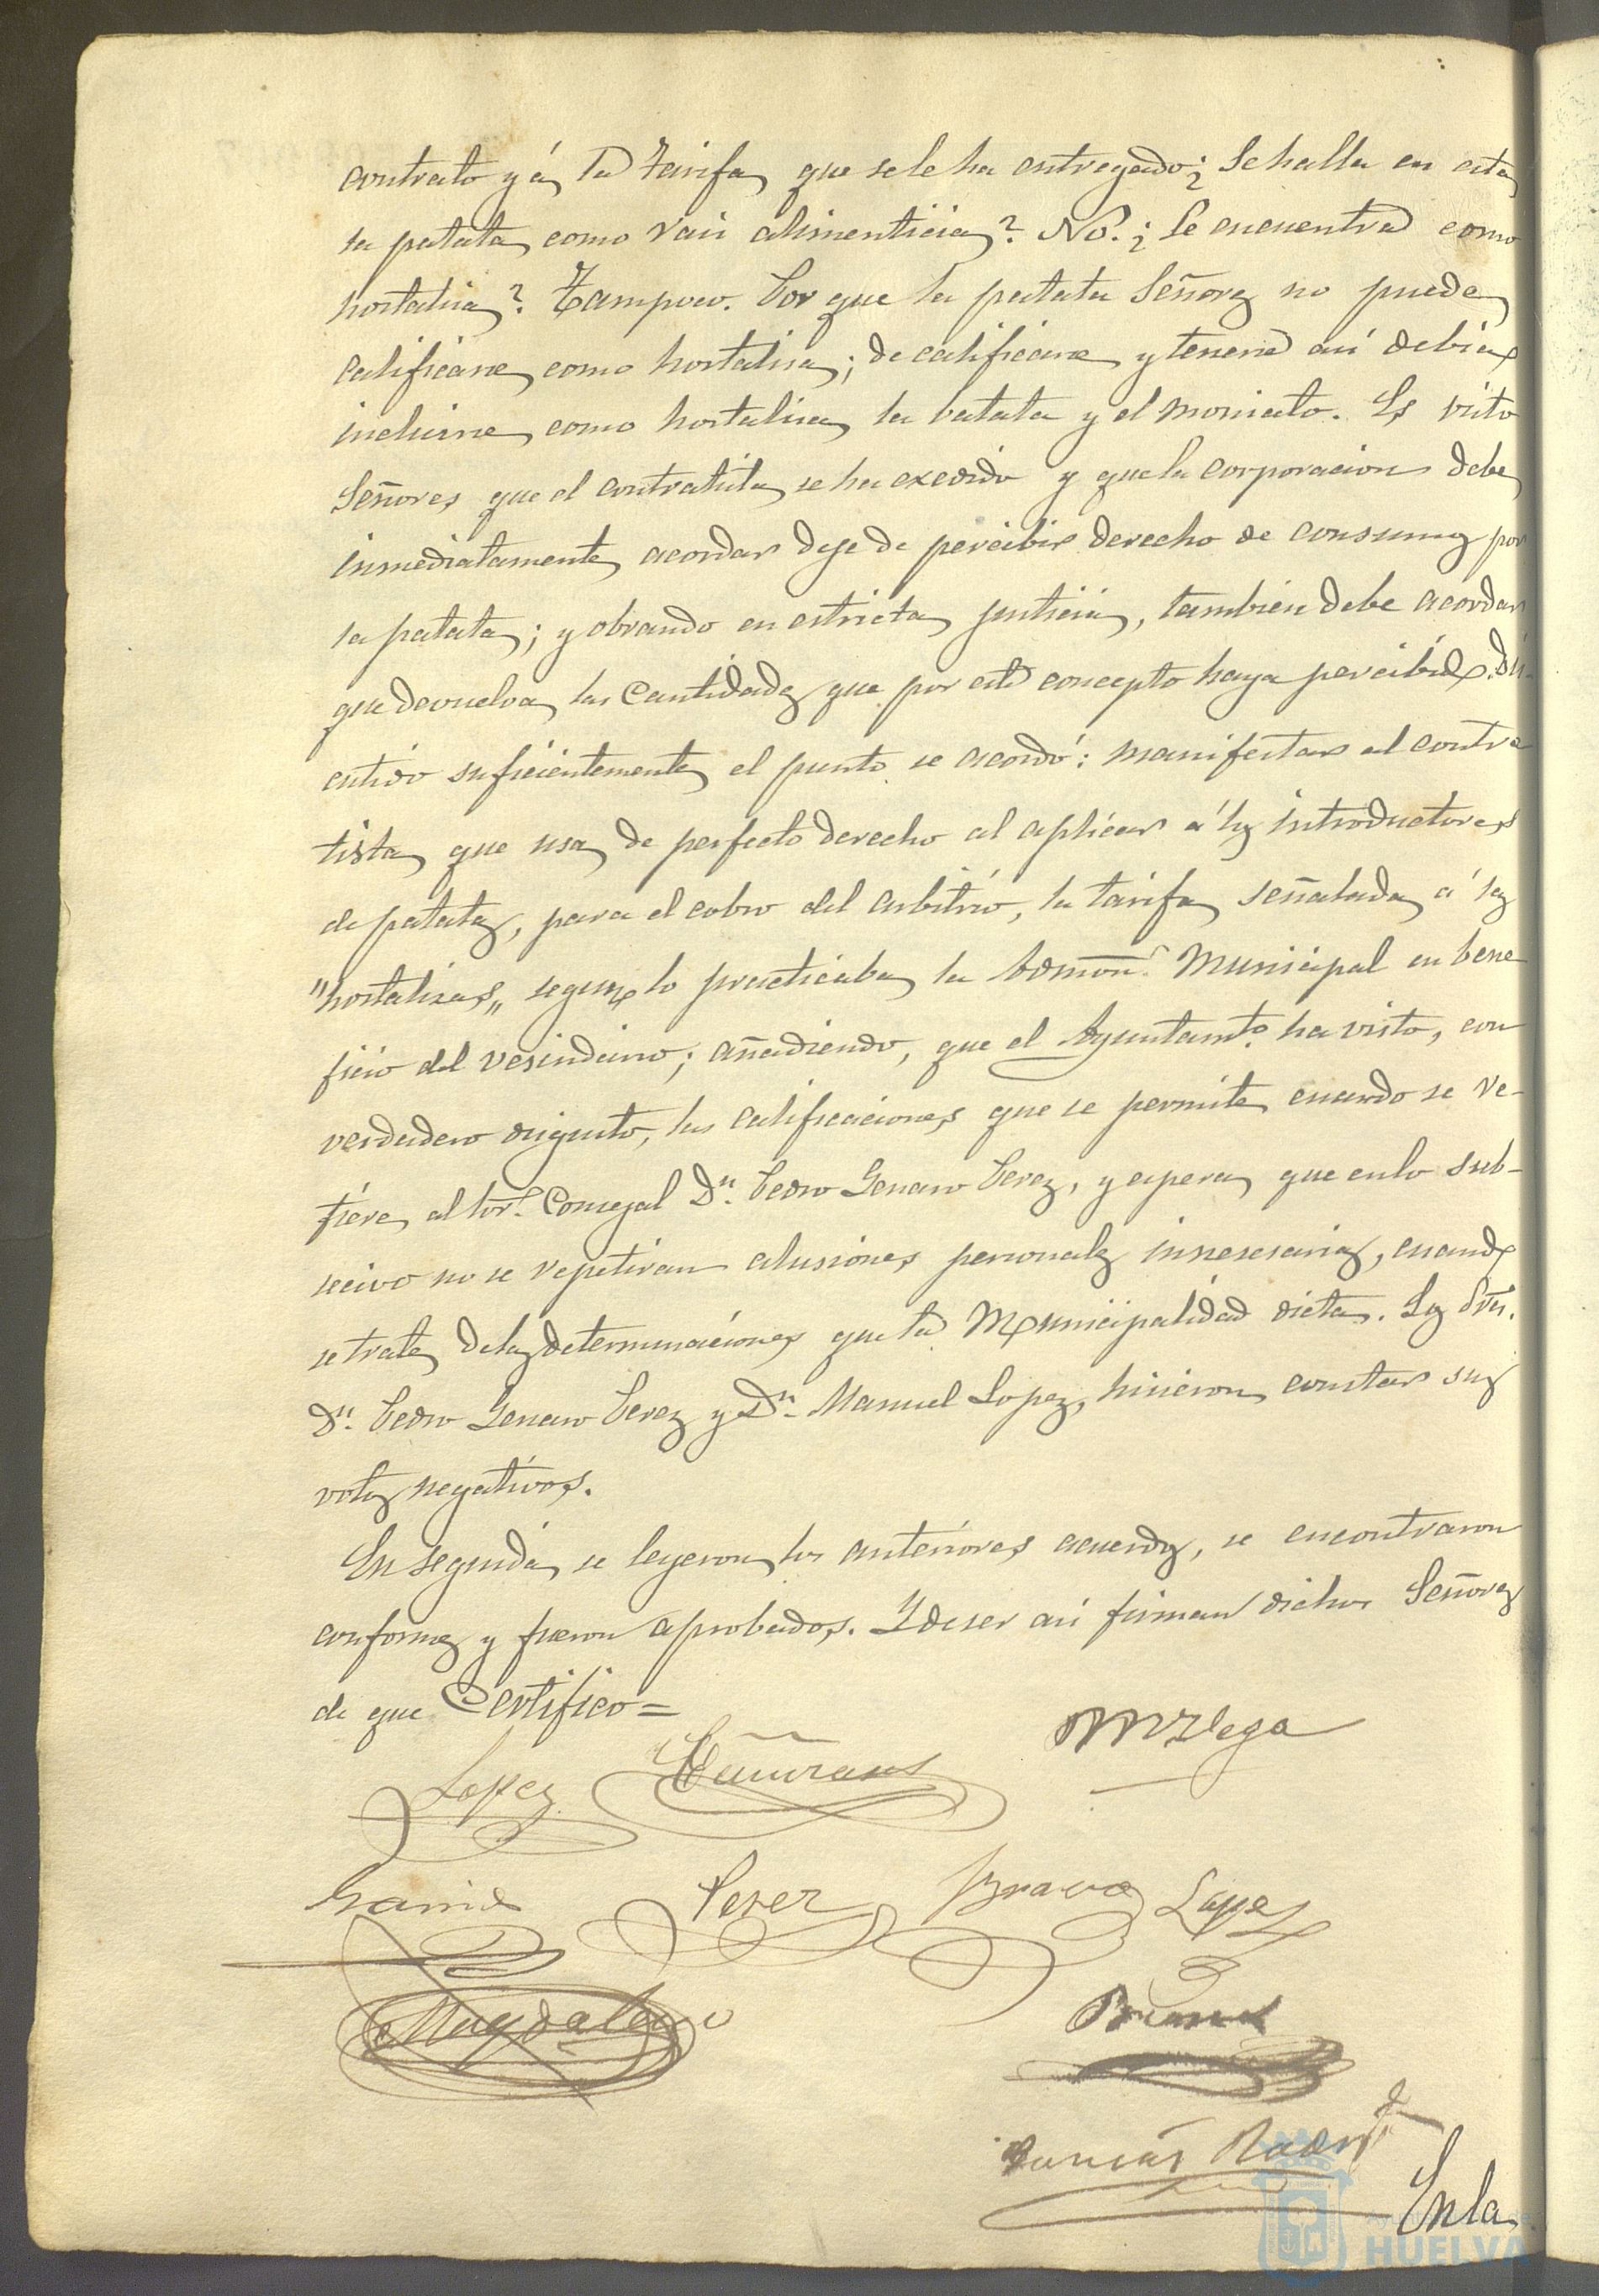 contrato y á la tarifa que se le ha entregado; ¿Se halla en esta
la patata como raiz alimenticia? No. ¿Se encuentra como
hortaliza? Tampoco. Por que la patata Señores no puede
calificarse como hortaliza; de calificarse y tenerse asi debia
incluirse como hortaliza la batata y el moniato. Es visto
Señores que el contratista se ha excedido y que la corporacion debe
inmediatamente acordar deje de percibir derecho de consumos por
la patata; y obrando en estricta justicia, tambien debe acordar
que devuelva las cantidades que por este concepto haya percibido. Dis-
cutido suficientemente el punto se acordó: manifestar al contra
tista que usa de perfecto derecho al aplicar á los introductores
de patatas, para el cobro del arbitrio, la tarifa señalada á las
"hortalizas" segun lo practicaba la Admon. Municipal en bene
ficio del vesindario; añadiendo, que el Ayuntamto. ha visto, con
verdadero disgusto, las calificaciones que se permite cuando se re-
fiere al Sor. Consejal Dn. Pedro Genaro Perez, y espera que en lo sub-
secivo no se repetiran alusiones personales innesesarias, cuando
se trate de las determinaciones que la Municipalidad dicta. Los Sres.
Dn. Pedro Genaro Perez y Dn. Manuel Lopez, hicieron constar sus
votos negativos.
En seguida se leyeron los anteriores acuerdos, se encontraron
conformes y fueron aprobados. Y de ser asi firman dichos Señores
de que Certifico=
Lopez
Garcia Perez Bravo Lopez
Magdaleno
Enla
HUELVA